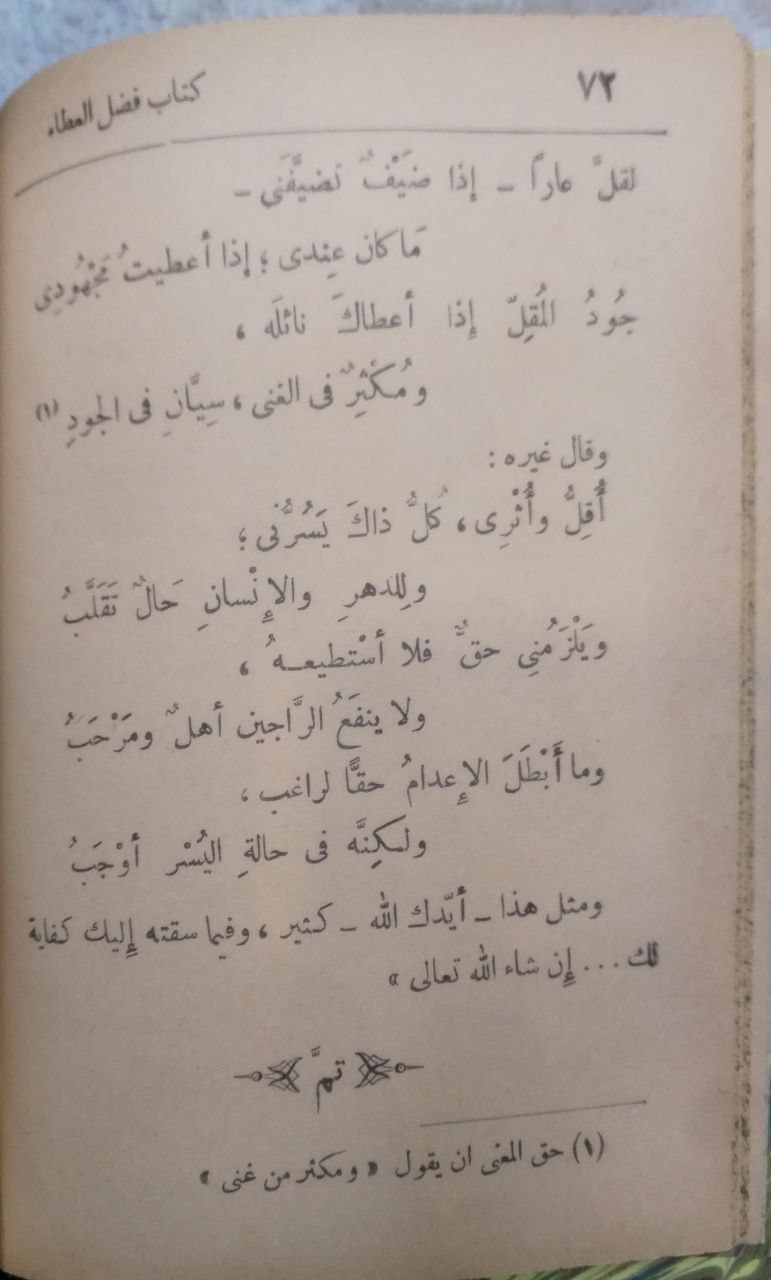 ٧٢
كتاب فضل العطاء
لقلَّ عاراً ـ إذا ضَيْفٌ تضيَّفَنى ـ
مَا كان عِندى ؛ إذا أعطيتُ مَجْهُودِى
جُودُ المُقِلِّ إِذا أعطاكَ نائلَه ،
ومُكْثِرٌ فى الغنى ، سِيَّانِ فى الجودِ (١)
وقال غيره :
أُقِلُّ وأُثْرِى ، كلُّ ذاكَ يَسُرُّنى ؛
ولِلدهرِ والإِنْسانِ حَالٌ تَقَلَّبُ
ويَلْزَمُنِى حقٌّ فلا أسْتطيعـهُ ،
ولا ينفَعُ الرَّاجين أهلٌ ومَرْحَبُ
وما أَبْطَلَ الإِعدامُ حقًّا لراغب ،
ولكِنَّه فى حالةِ اليُسْر أوْجَبُ
ومثل هذا ـ أيّدك الله ـ كثير ، وفيما سقته إِليك كفاية
لك ... إِن شاء الله تعالى »
تمَّ
(١) حق المغى ان يقول « ومكثر من غنى »